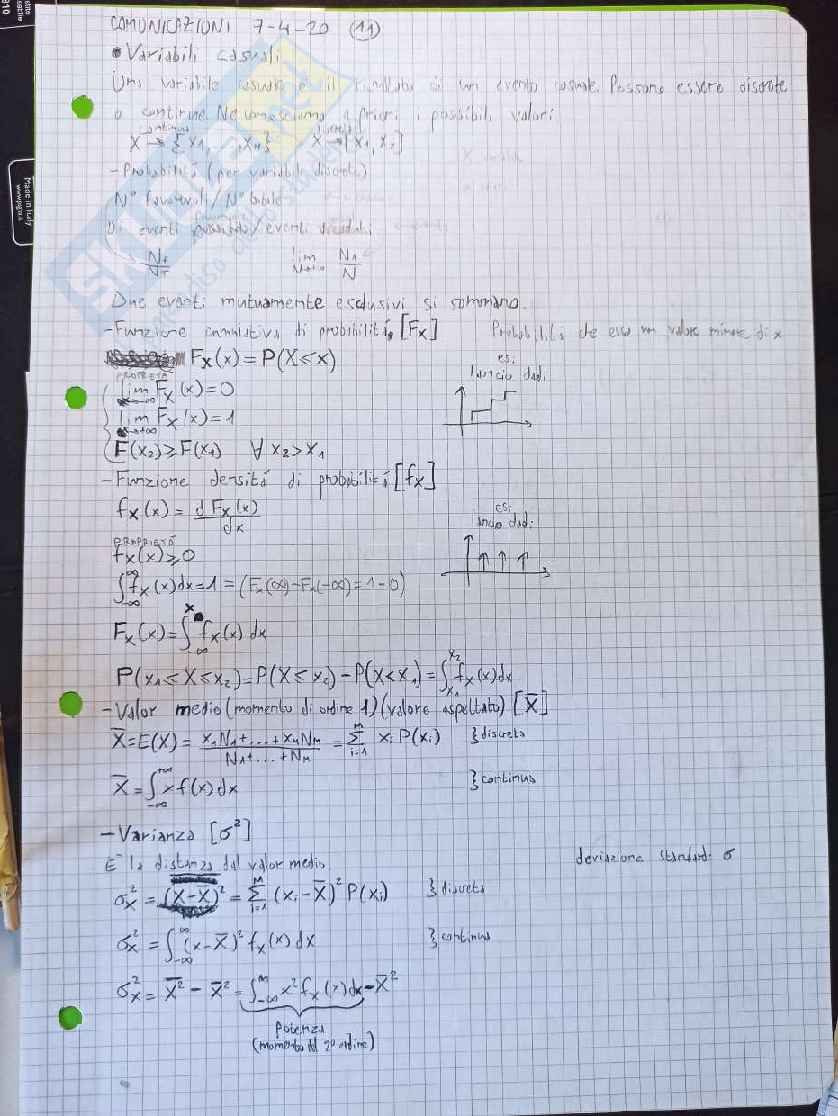 COMUNICAZIONI 7-4-20 (11)
• Variabili casuali
Una variabile casuale è il risultato di un evento casuale. Possono essere discrete
o continue. Ne conosciamo a priori i possibili valori
continua discreta
X → { X1, ..., XM } X → [X1, X2]
- Probabilità (per variabile discreta)
N° favorevoli / N° totale
Di eventi / eventi
N1/NT lim N1/N
Due eventi mutuamente esclusivi si sommano.
- Funzione cumulativa di probabilità [FX] Probabilità di un valore minore di x
FX(x) = P(X ≤ x)
es:
lancio dadi
PROPRIETÀ
lim FX(x) = 0
x→-∞
lim FX(x) = 1
x→+∞
F(x2) ≥ F(x1) ∀ x2 > x1
- Funzione densità di probabilità [fX]
fX(x) = d FX(x) / dx
es:
dadi
PROPRIETÀ
fX(x) ≥ 0
∫-∞^∞ fX(x) dx = 1 = (FX(∞) - FX(-∞) = 1 - 0)
FX(x) = ∫∞^x fX(x) dx
P(x1 ≤ X ≤ x2) = P(X ≤ x2) - P(X < x1) = ∫x1^x2 fX(x) dx
- Valor medio (momento di ordine 1) (valore aspettato) [X̅]
X̅ = E(X) = (x1 N1 + ... + xM NM) / (N1 + ... + NM) = Σ i=1^M xi P(xi) } discreta
X̅ = ∫-∞^+∞ x f(x) dx } continua
- Varianza [σ²]
E' la distanza dal valor medio deviazione standard: σ
σX² = (X - X̅)² = Σ i=1^M (xi - X̅)² P(xi) } discreta
σX² = ∫-∞^∞ (x - X̅)² fX(x) dx } continua
σX² = X̅² - X̅² = ∫-∞^∞ x² fX(x) dx - X̅²
Potenza
(momento del 2° ordine)
skuola.net
Made in Italy